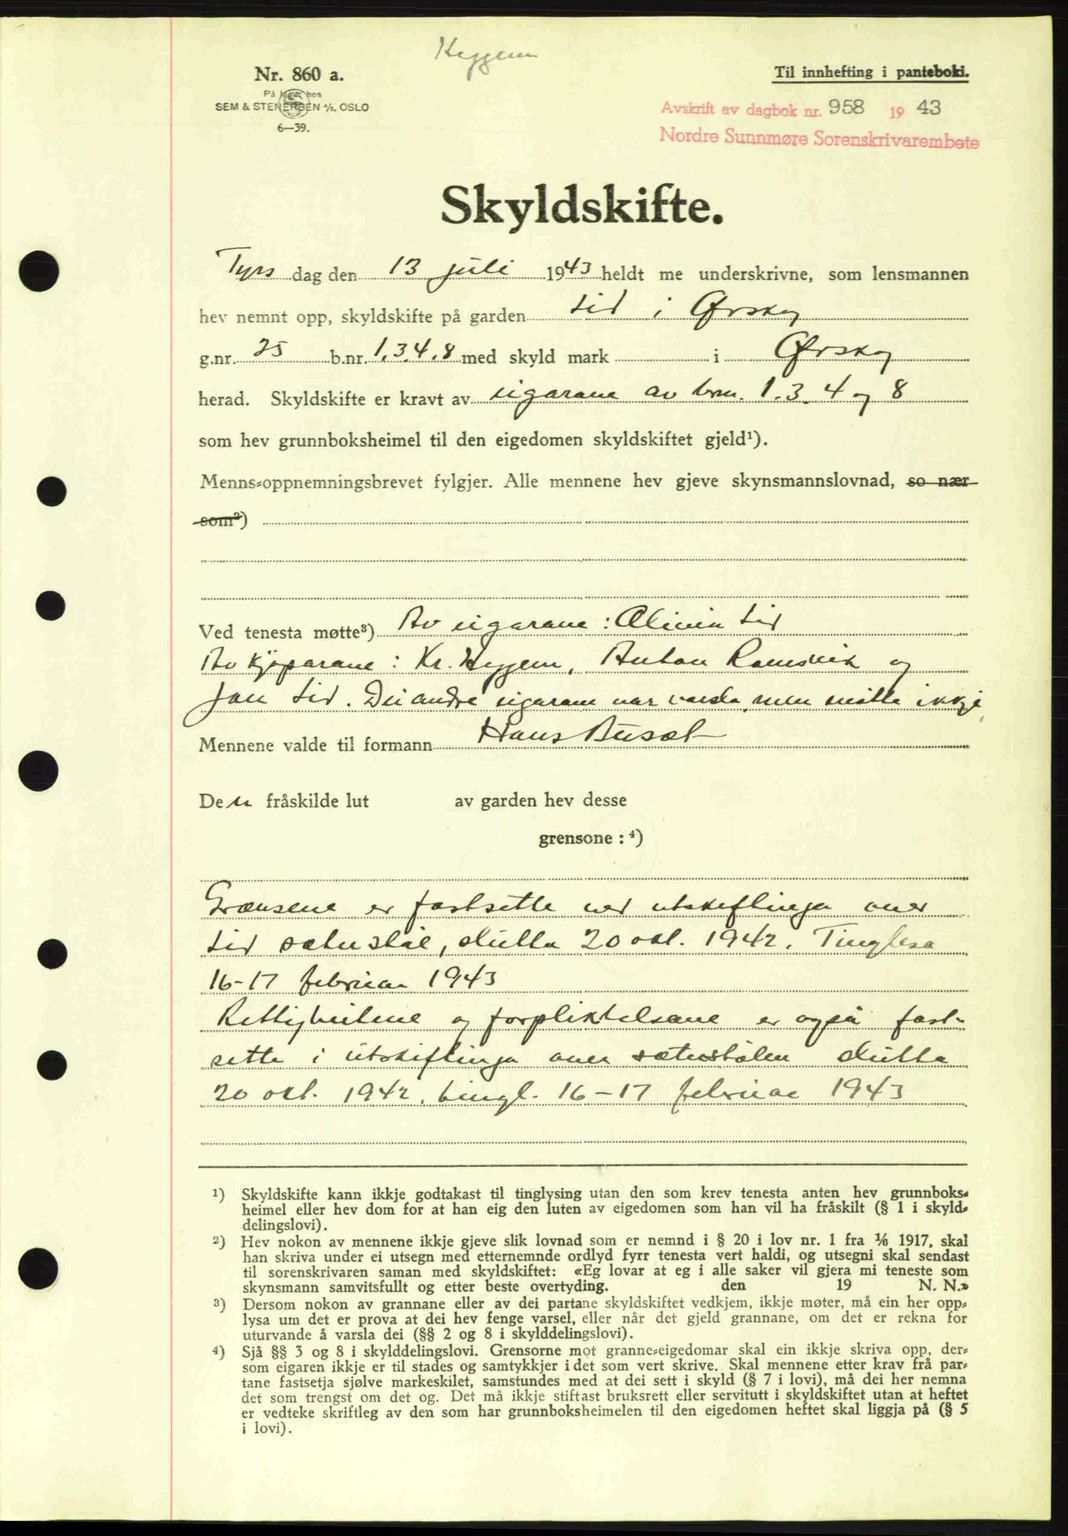 Keggem
Nr. 860 a.
På lager hos
SEM & STENERSEN A/S, OSLO
6—39.
Til innhefting i panteboki.
Avskrift av dagbok nr. 958 19 43
Nordre Sunnmøre Sorenskrivarembete
Skyldskifte.
Tyrs dag den 13 juli 1943 heldt me underskrivne, som lensmannen
hev nemnt opp, skyldskifte på garden Lid i Ørskog
g.nr. 25 b.nr. 1.3.4.8 med skyld mark i Ørskog
herad. Skyldskifte er kravt av eigarane av brn. 1.3.4 og 8
som hev grunnboksheimel til den eigedomen skyldskiftet gjeld¹).
Menns-oppnemningsbrevet fylgjer. Alle mennene hev gjeve skynsmannslovnad, so nær
som²)
Ved tenesta møtte³) Av eigarane: Lid
Av kjøparane: Kr. Heggem, Anton Ramsvik og
Jon Lid. Dei andre eigarane var varsla, men møtte ikkje
Mennene valde til formann Hans Busæt
Den fråskilde lut av garden hev desse
grensone: ⁴)
Grensene er fastsette ved utskiftinga over
Lid sæterstøl, slutta 20 okt. 1942. Tinglesa
16-17 februar 1943
Rettigheitene og forpliktelsane er også fast-
sette i utskiftinga over sæterstølen slutta
20 okt. 1942, tingl. 16-17 februar 1943
¹) Skyldskifte kann ikkje godtakast til tinglysing utan den som krev tenesta anten hev grunnboks-
heimel eller hev dom for at han eig den luten av eigedomen som han vil ha fråskilt (§ 1 i skyld-
delingslovi).
²) Hev nokon av mennene ikkje gjeve slik lovnad som er nemnd i § 20 i lov nr. 1 fra 1/6 1917, skal
han skriva under ei utsegn med etternemnde ordlyd fyrr tenesta vert haldi, og utsegni skal sendast
til sorenskrivaren saman med skyldskiftet: «Eg lovar at eg i alle saker vil gjera mi teneste som
skynsmann samvitsfullt og etter beste overtyding. den 19 N. N.»
³) Dersom nokon av grannane eller av dei partane skyldskiftet vedkjem, ikkje møter, må ein her opp-
lysa um det er prova at dei hev fenge varsel, eller når det gjeld grannane, om det er rekna for
uturvande å varsla dei (§§ 2 og 8 i skylddelingslovi).
⁴) Sjå §§ 3 og 8 i skylddelingslovi. Grensorne mot granne-eigedomar skal ein ikkje skriva opp, der-
som eigaren ikkje er til stades og samtykkjer i det som vert skrive. Skal mennene etter krav frå par-
tane fastsetja sjølve markeskilet, samstundes med at dei sett i skyld (§ 7 i lovi), må dei her nemna
det som trengst om det og. Det må ikkje stiftast bruksrett eller servitutt i skyldskiftet utan at heftet
er vedteke skriftleg av den som har grunnboksheimelen til den eigedomen heftet skal liggja på (§ 5
i lovi).